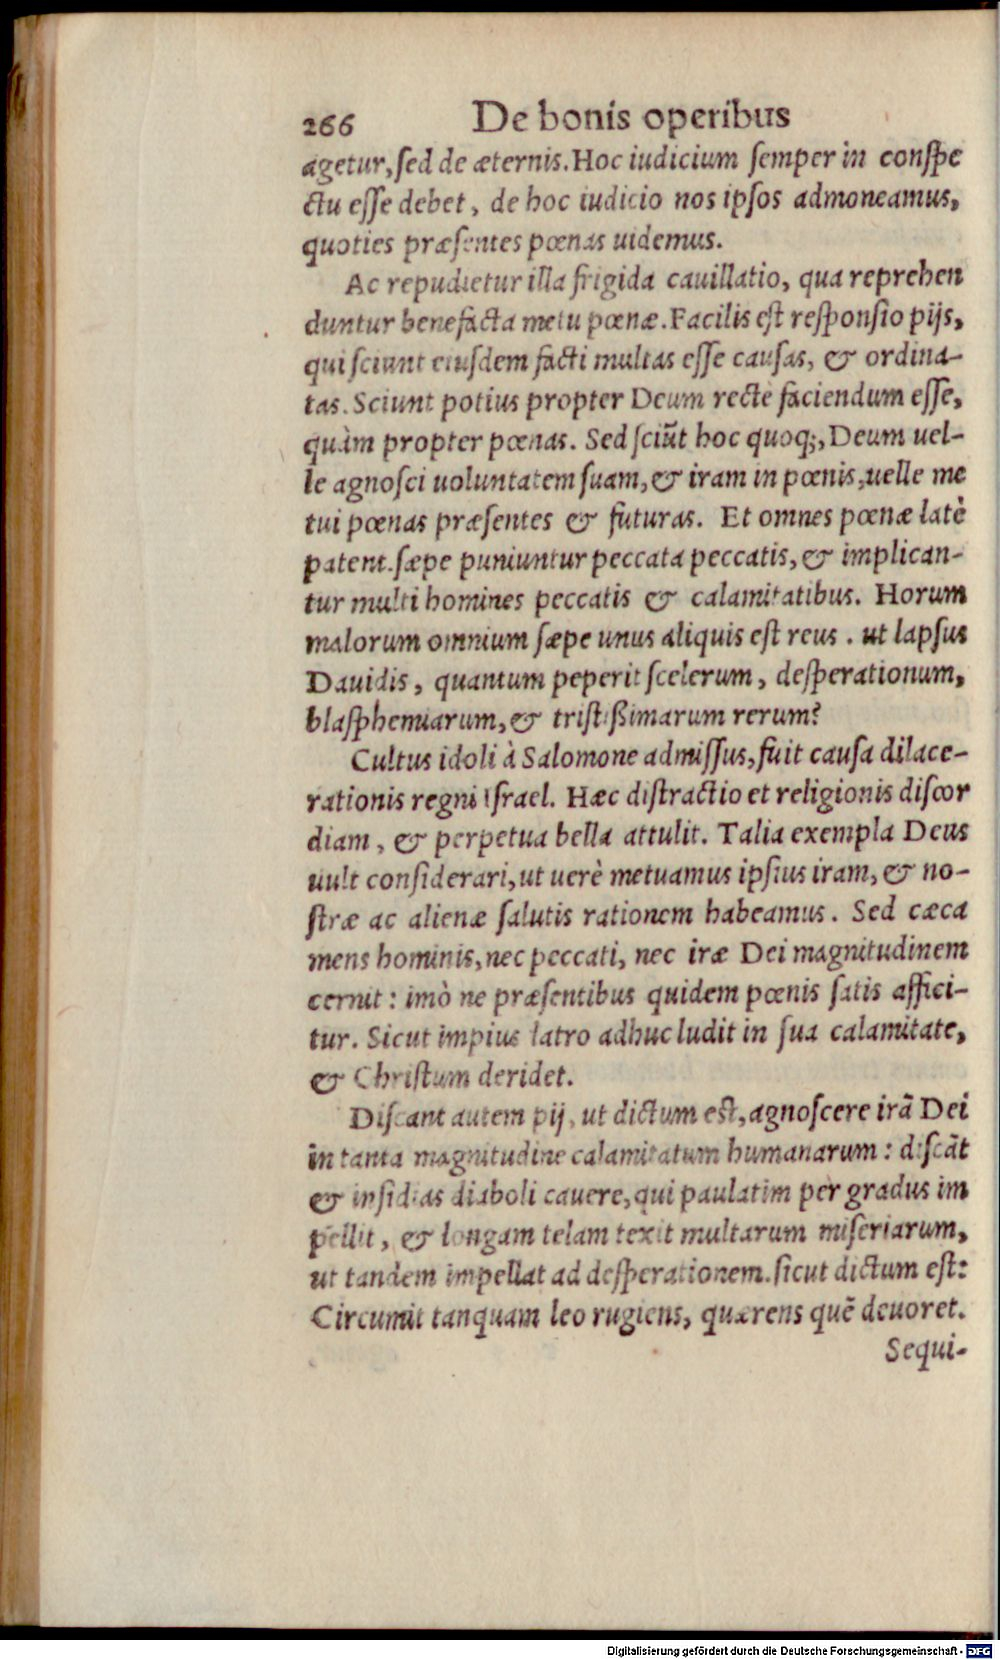 266 De bonis operibus
agetur, sed de æternis. Hoc iudicium semper in conspe
ctu esse debet, de hoc iudicio nos ipsos admoneamus,
quoties præsentes pœnas uidemus.
Ac repudietur illa frigida cauillatio, qua reprehen
duntur benefacta metu pœnæ. Facilis est responsio pijs,
qui sciunt eiusdem facti multas esse causas, & ordina-
tas. Sciunt potius propter Deum rectè faciendum esse,
quàm propter pœnas. Sed sciũt hoc quoq;, Deum uel-
le agnosci uoluntatem suam, & iram in pœnis, uelle me
tui pœnas præsentes & futuras. Et omnes pœnæ latè
patent. sæpe puniuntur peccata peccatis, & implican-
tur multi homines peccatis & calamitatibus. Horum
malorum omnium sæpe unus aliquis est reus. ut lapsus
Dauidis, quantum peperit scelerum, desperationum,
blasphemiarum, & tristißimarum rerum?
Cultus idoli à Salomone admissus, fuit causa dilace-
rationis regni Israel. Hæc distractio et religionis discor
diam, & perpetua bella attulit. Talia exempla Deus
uult considerari, ut uerè metuamus ipsius iram, & no-
stræ ac alienæ salutis rationem habeamus. Sed cæca
mens hominis, nec peccati, nec iræ Dei magnitudinem
cernit: imò ne præsentibus quidem pœnis satis affici-
tur. Sicut impius latro adhuc ludit in sua calamitate,
& Christum deridet.
Discant autem pij, ut dictum est, agnoscere irã Dei
in tanta magnitudine calamitatum humanarum: discãt
& insidias diaboli cauere, qui paulatim per gradus im
pellit, & longam telam texit multarum miseriarum,
ut tandem impellat ad desperationem. sicut dictum est:
Circumit tanquam leo rugiens, quærens quẽ deuoret.
Sequi-
Digitalisierung gefördert durch die Deutsche Forschungsgemeinschaft - DFG